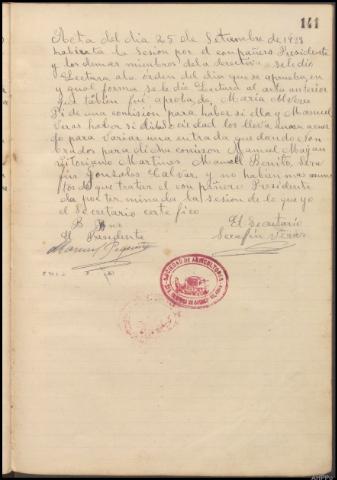 141
Acta del dia 25 de Setiembre de 19
habierta la Sesion por el compañero Presidente
y los demas miembros dela directiva se le dio
Lectura ala órden del dia que se aprueba en
y gual forma se le dio Lectura al acta anterior
que tabien fué aprobada, Maria
Pide una comision para haber si ella y Manuel
Veras haber si dibaldo cidad los lleva aun acuer
go para variar una entrada que dando Non
brados para dicha comison Manuel Mojan
Vitoriano Martines Manuel Benito Sera
fin Gonzales Calvar, y no habian mas asun
tos de que tratar el compañero Presidente
da por terminada la sesion de lo que yo
el Secretario certe fico
El Presidente
El Secretario
Serafin Veras
SOCIEDAD DE AGRICULTORES